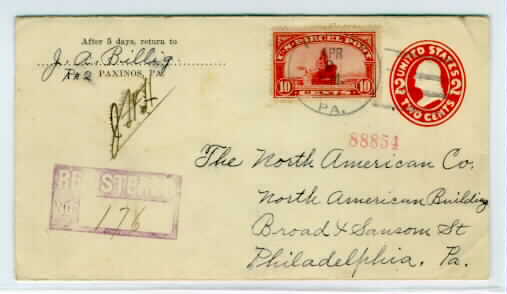 After 5 days, return to
J. A. Billig
PAXINOS, PA.
U.S. PARCEL POST
10 CENTS 10
APR
PA.
UNITED STATES
2 2
TWO CENTS
88854
REGISTERED
NO. 176
The North American Co.
North American Building
Broad & Sansom St
Philadelphia. Pa.